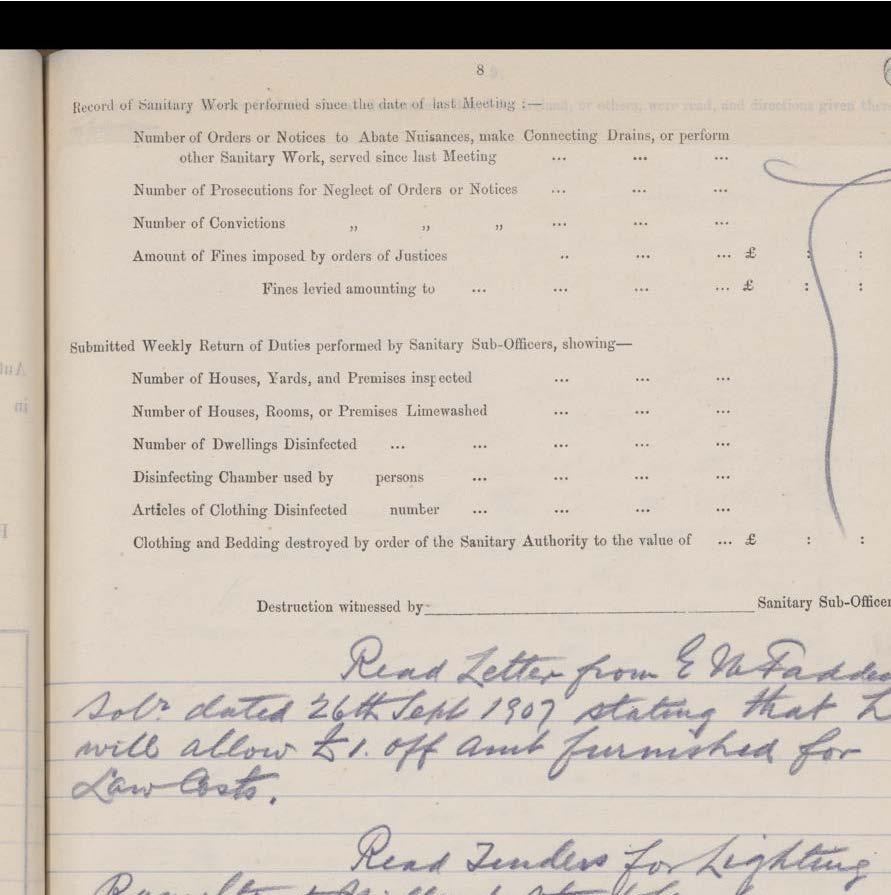 8
Record of Sanitary Work performed since the date of last Meeting :—
Number of Orders or Notices to Abate Nuisances, make Connecting Drains, or perform
other Sanitary Work, served since last Meeting ... ... ...
Number of Prosecutions for Neglect of Orders or Notices ... ... ...
Number of Convictions ,, ,, ,, ... ... ...
Amount of Fines imposed by orders of Justices .. ... ... £ : :
Fines levied amounting to ... ... ... ... £ : :
Submitted Weekly Return of Duties performed by Sanitary Sub-Officers, showing—
Number of Houses, Yards, and Premises inspected ... ... ...
Number of Houses, Rooms, or Premises Limewashed ... ... ...
Number of Dwellings Disinfected ... ... ... ... ...
Disinfecting Chamber used by persons ... ... ... ...
Articles of Clothing Disinfected number ... ... ... ...
Clothing and Bedding destroyed by order of the Sanitary Authority to the value of ... £ : :
Destruction witnessed by Sanitary Sub-Officer
Read Letter from E McFadden
Solr dated 26th Sept 1907 stating that
will allow £1. off amt furnished for
Law Costs.
Read Tenders for Lighting